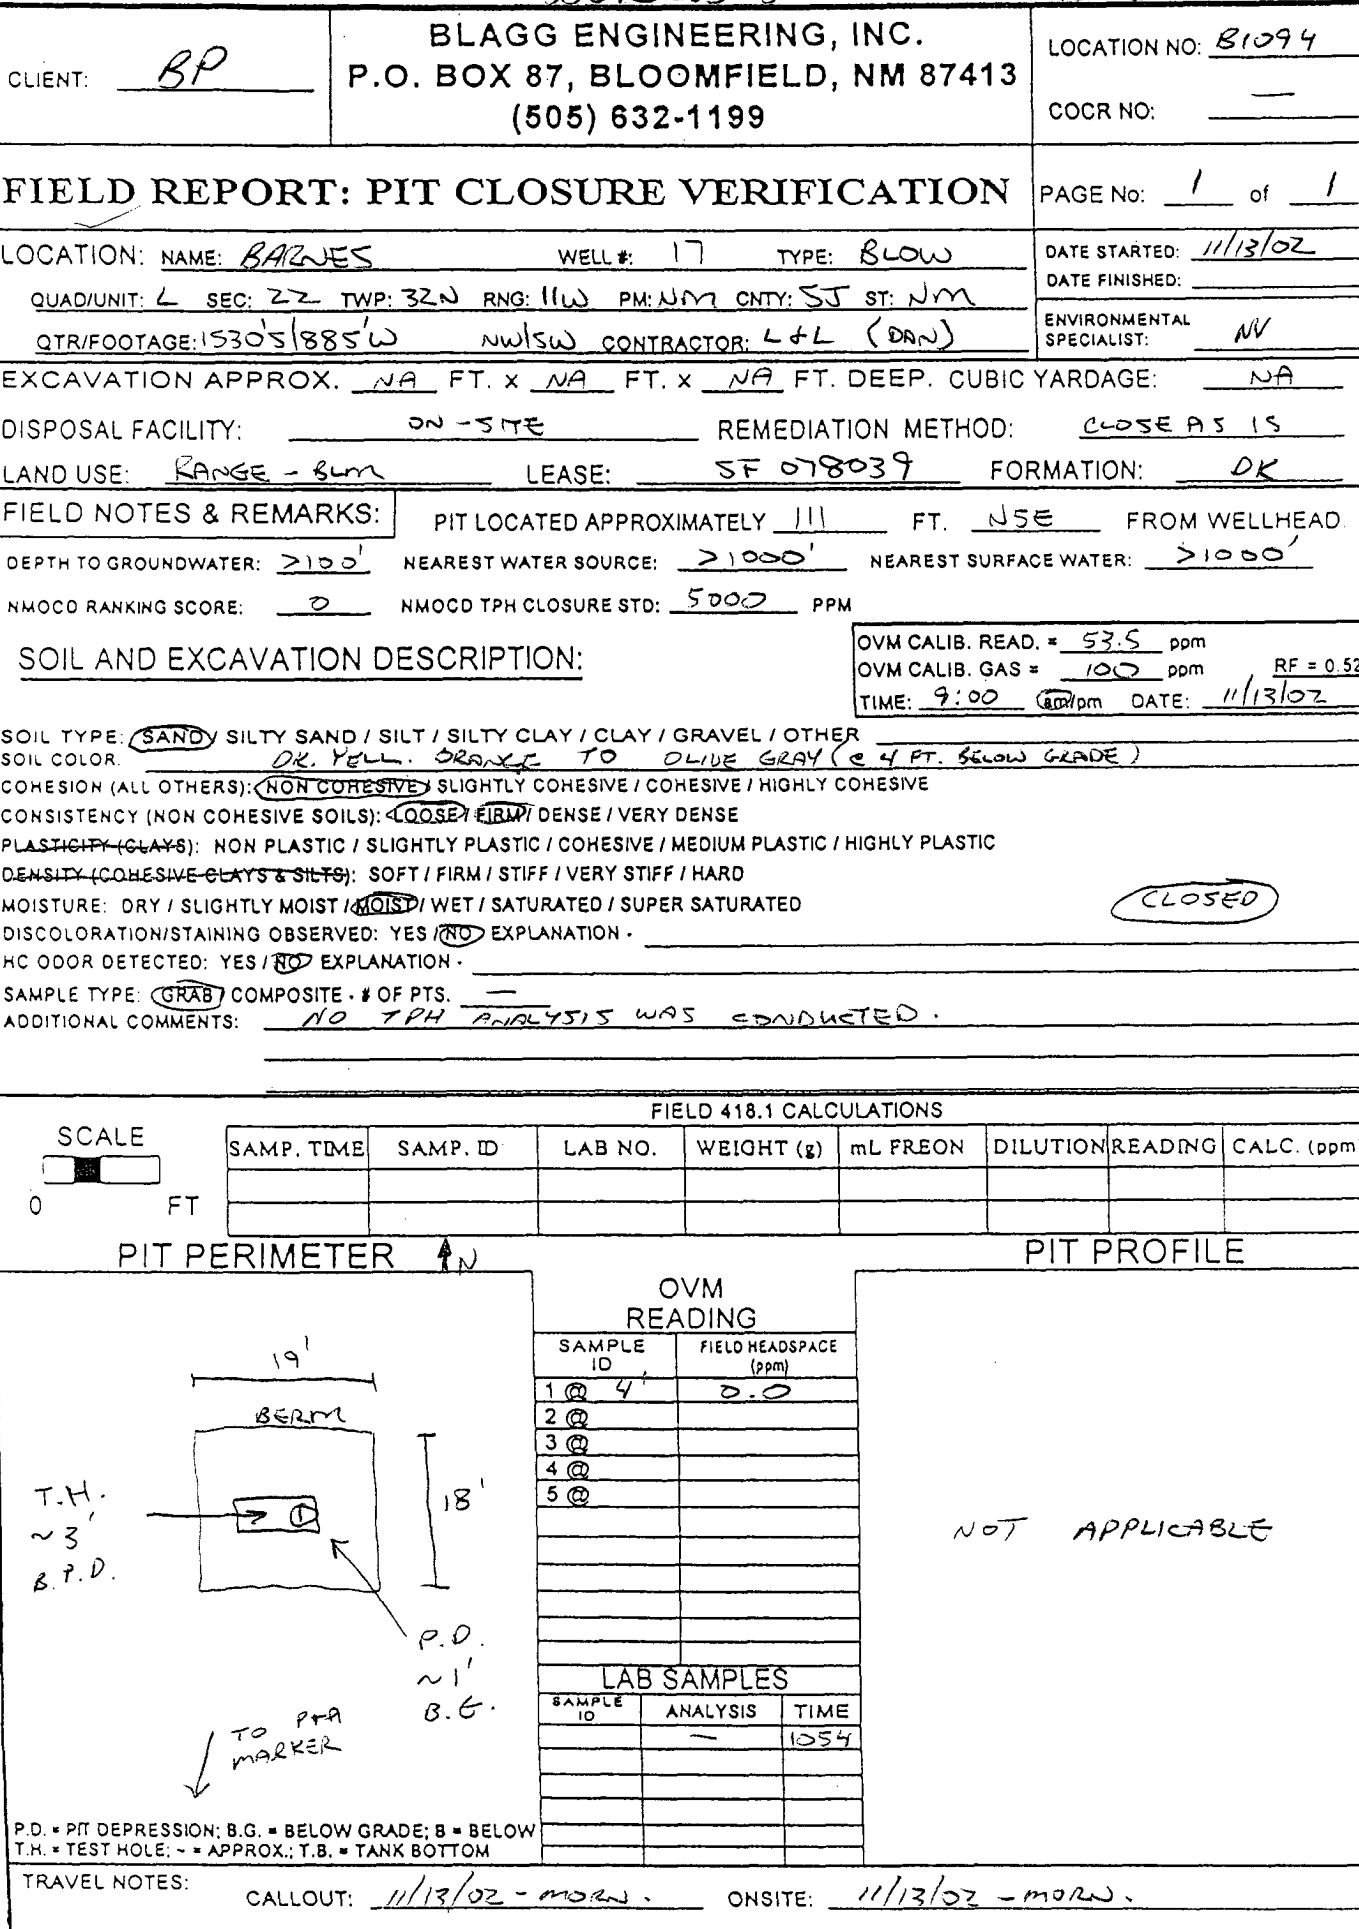 BLAGG ENGINEERING, INC.
P.O. BOX 87, BLOOMFIELD, NM 87413
(505) 632-1199
CLIENT: BP
LOCATION NO: B1094
COCR NO: —
FIELD REPORT: PIT CLOSURE VERIFICATION
PAGE No: 1 of 1
LOCATION: NAME: BARNES WELL #: 17 TYPE: BLOW
QUAD/UNIT: L SEC: 22 TWP: 32N RNG: 11W PM: NM CNTY: SJ ST: NM
QTR/FOOTAGE: 1530'S/885'W NW/SW CONTRACTOR: L+L (DAN)
DATE STARTED: 11/13/02
DATE FINISHED:
ENVIRONMENTAL
SPECIALIST: NV
EXCAVATION APPROX. NA FT. x NA FT. x NA FT. DEEP. CUBIC YARDAGE: NA
DISPOSAL FACILITY: ON-SITE REMEDIATION METHOD: CLOSE AS IS
LAND USE: RANGE - BLM LEASE: SF 078039 FORMATION: DK
FIELD NOTES & REMARKS: PIT LOCATED APPROXIMATELY 111 FT. N5E FROM WELLHEAD.
DEPTH TO GROUNDWATER: >100' NEAREST WATER SOURCE: >1000' NEAREST SURFACE WATER: >1000'
NMOCD RANKING SCORE: 0 NMOCD TPH CLOSURE STD: 5000 PPM
SOIL AND EXCAVATION DESCRIPTION:
OVM CALIB. READ. = 53.5 ppm
OVM CALIB. GAS = 100 ppm RF = 0.52
TIME: 9:00 am/pm DATE: 11/13/02
SOIL TYPE: SAND / SILTY SAND / SILT / SILTY CLAY / CLAY / GRAVEL / OTHER
SOIL COLOR: DK. YELL. ORANGE TO OLIVE GRAY (@ 4 FT. BELOW GRADE)
COHESION (ALL OTHERS): NON COHESIVE / SLIGHTLY COHESIVE / COHESIVE / HIGHLY COHESIVE
CONSISTENCY (NON COHESIVE SOILS): LOOSE / FIRM / DENSE / VERY DENSE
PLASTICITY (CLAYS): NON PLASTIC / SLIGHTLY PLASTIC / COHESIVE / MEDIUM PLASTIC / HIGHLY PLASTIC
DENSITY (COHESIVE CLAYS & SILTS): SOFT / FIRM / STIFF / VERY STIFF / HARD
MOISTURE: DRY / SLIGHTLY MOIST / MOIST / WET / SATURATED / SUPER SATURATED
CLOSED
DISCOLORATION/STAINING OBSERVED: YES / NO EXPLANATION -
HC ODOR DETECTED: YES / NO EXPLANATION -
SAMPLE TYPE: GRAB / COMPOSITE - # OF PTS. —
ADDITIONAL COMMENTS: NO TPH ANALYSIS WAS CONDUCTED.
FIELD 418.1 CALCULATIONS
SCALE
0 FT
SAMP. TIME SAMP. ID LAB NO. WEIGHT (g) mL FREON DILUTION READING CALC. (ppm)
PIT PERIMETER N
PIT PROFILE
OVM
READING
SAMPLE ID FIELD HEADSPACE (ppm)
1 @ 4' 0.0
2 @
3 @
4 @
5 @
19'
BERM
18'
T.H.
~3'
B.P.D.
1
P.D.
~1'
B.G.
TO P+A
MARKER
NOT APPLICABLE
LAB SAMPLES
SAMPLE ID ANALYSIS TIME
— 1054
P.D. = PIT DEPRESSION; B.G. = BELOW GRADE; B = BELOW
T.H. = TEST HOLE; ~ = APPROX.; T.B. = TANK BOTTOM
TRAVEL NOTES:
CALLOUT: 11/13/02 - MORN. ONSITE: 11/13/02 - MORN.